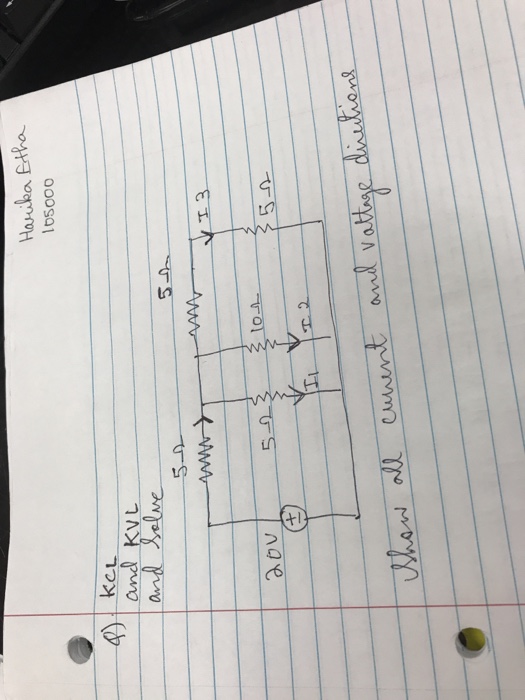 Harika Etha
105000
Q). KCL
and KVL
and Solve
5Ω 5Ω
I3
20V 5Ω 10Ω 5Ω
I1 I2
Show all current and voltage directions